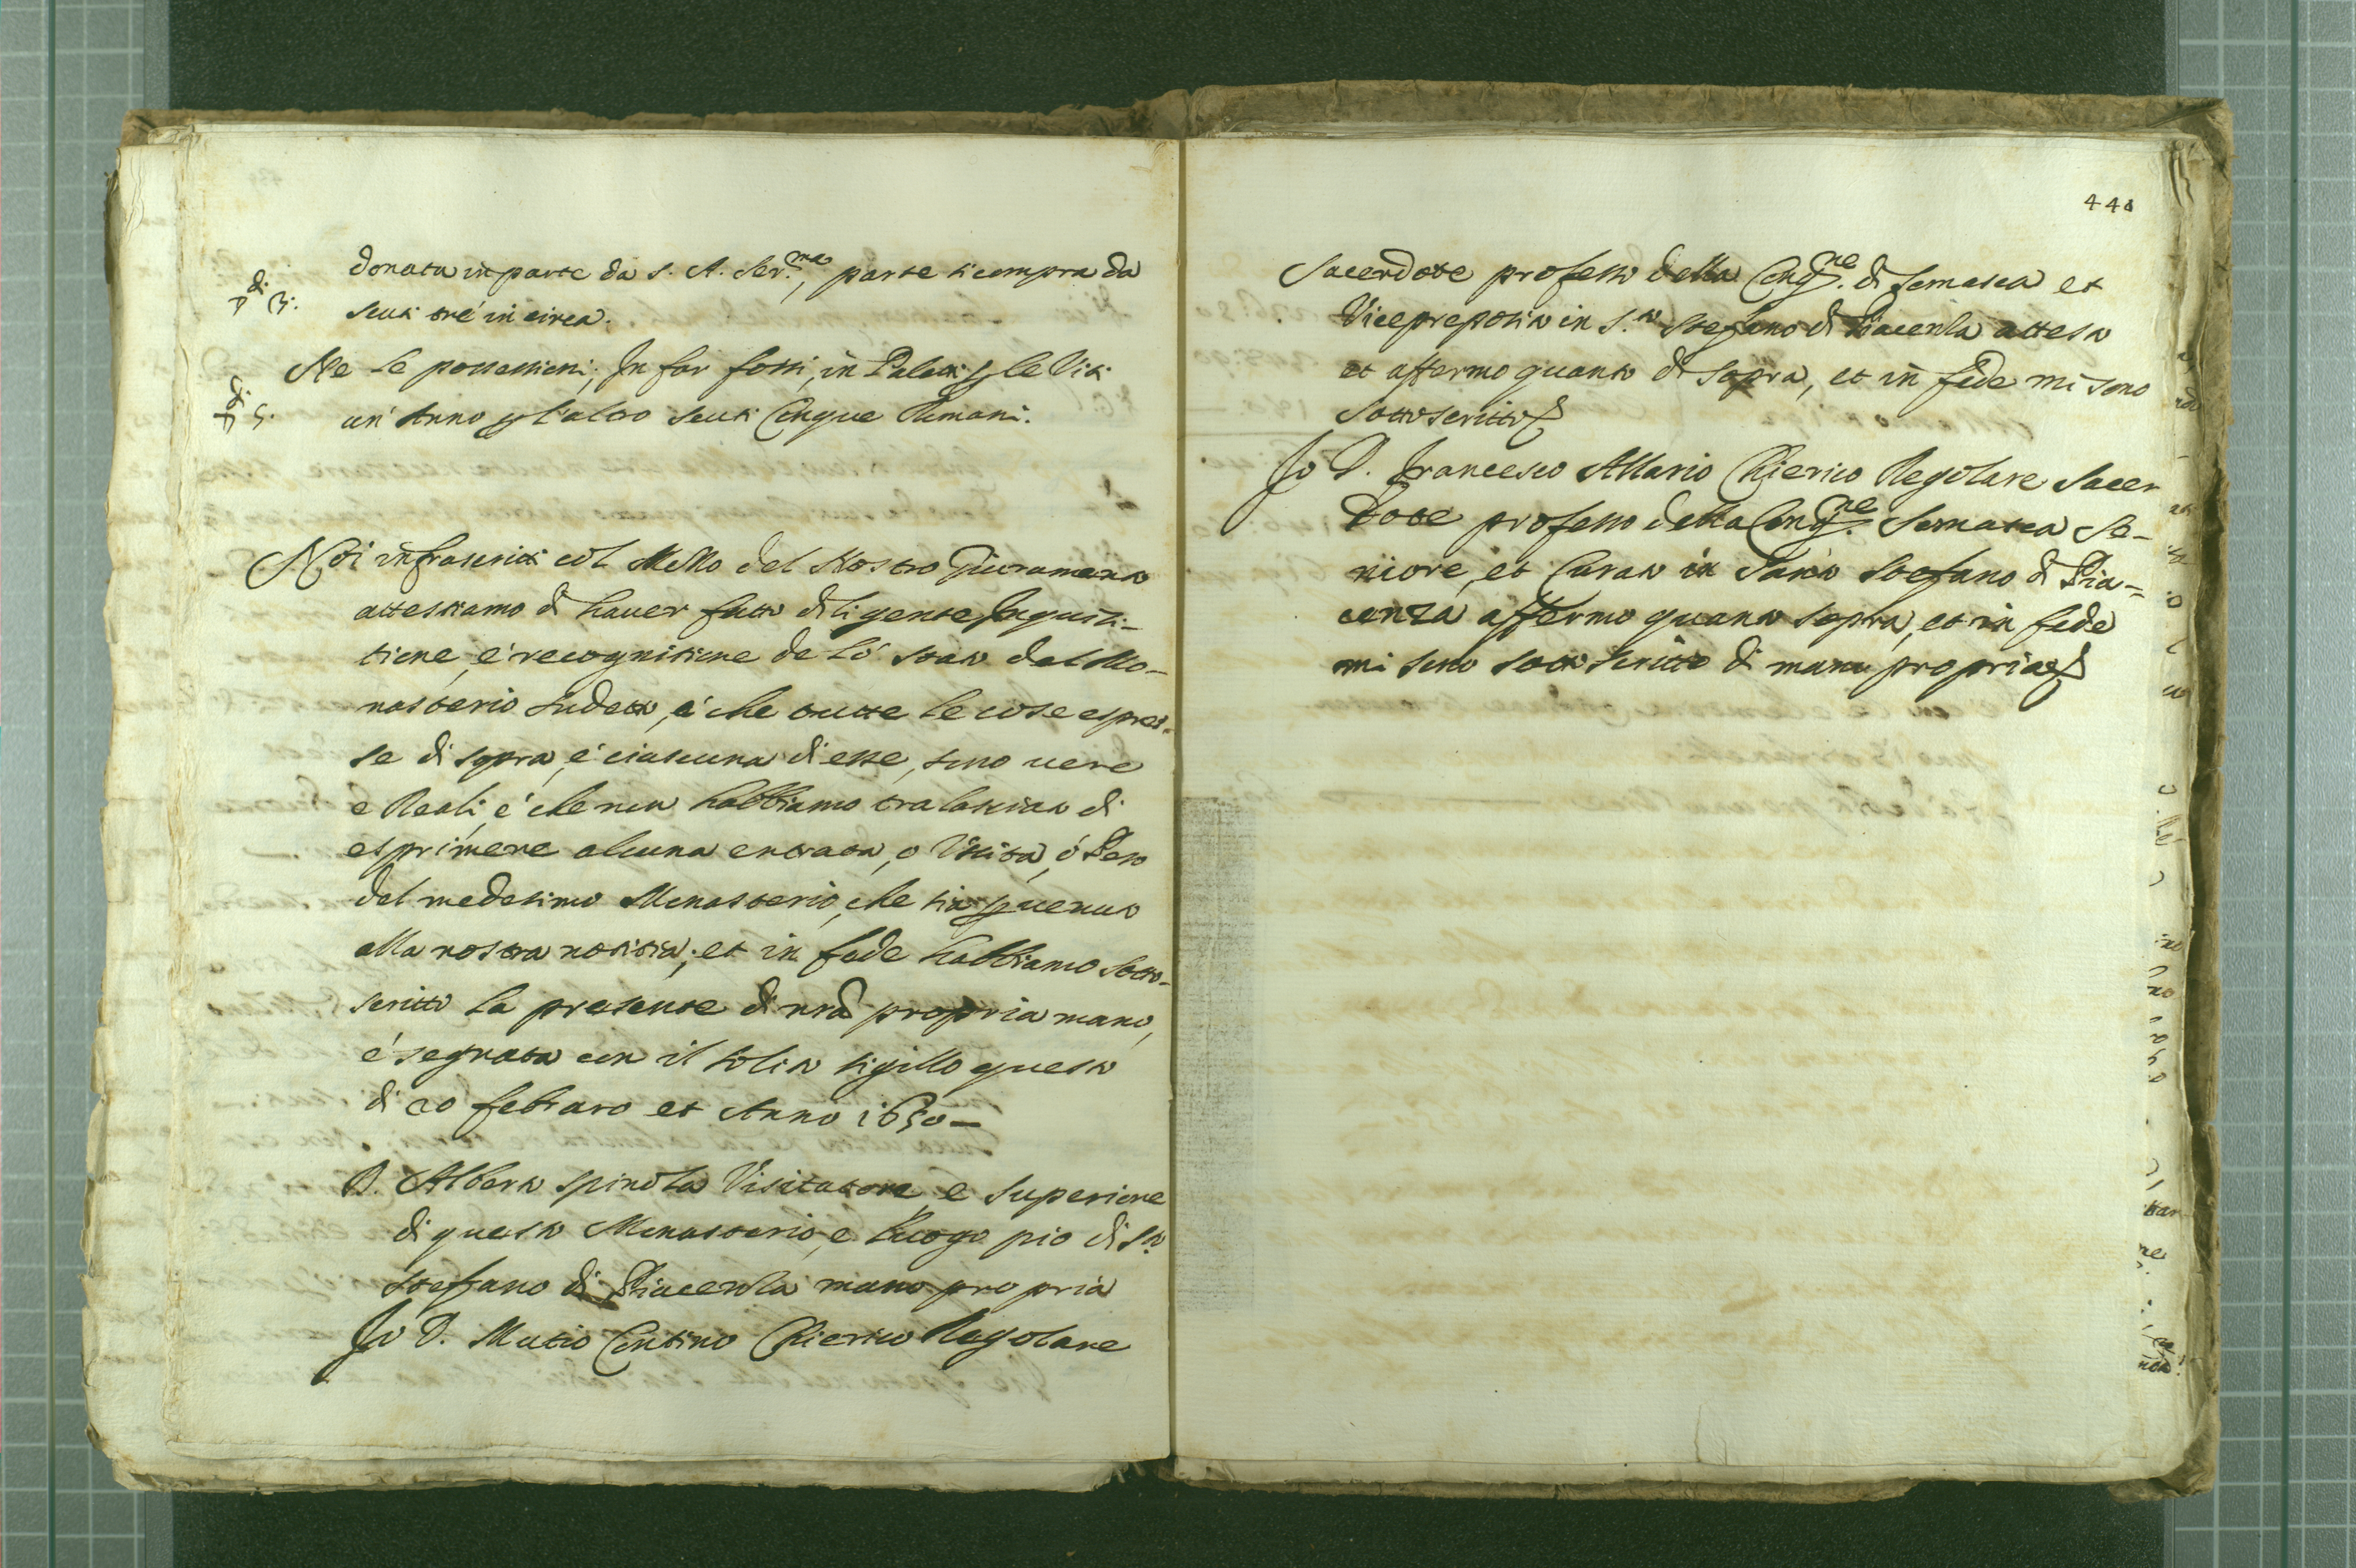 donata in parte da S. A. Ser.ma, parte si compra da
▽di 3:
scuti tré in circa.
Ne le possessioni; In far fossi, in Palati p le Viti
▽di 5.
un' Anno p l'altro scuti Cinque Rimani.
Noi infrascritti col Mezzo del Nostro Giuramento
attestiamo di haver fatto diligente Inquisi-
tione, é recognitione de ló stato del Mo-
nasterio sudetto, é che tutte le cose espres-
se di sopra, é ciascuna di esse, sono vere
e Reali, é che non habbiamo tralasciato di
esprimere alcuna entrata, o Uscita, ó Peso
del medesimo Monasterio, che sia pvenuto
alla nostra notitia; et in fede habbiamo sotto-
scritto la presente di nrã propria mano,
é segnata con il solito sigillo questo
di 20 febraro et Anno 1650—
D. Alberto Spinola Visitatore e Superiore
di questo Monasterio, e Luogo pio di S.to
Steffano di Piacenza mano propria
Io D. Mutio Contino Chierico Regolare
440
Sacerdote professo della Cong.ne di Somasca et
Vicepreposito in S.to Stefano di Piacenza attesto
et affermo quanto di sopra, et in fede mi sono
sottoscritto
Io D. Francesco Allario Chierico Regolare Sacer
dote professo della Cong.ne Somasca Se-
niore, et Curato in Santo Stefano di Pia=
cenza affermo quanto sopra, et in fede
mi sono sotto scritto di manu propria